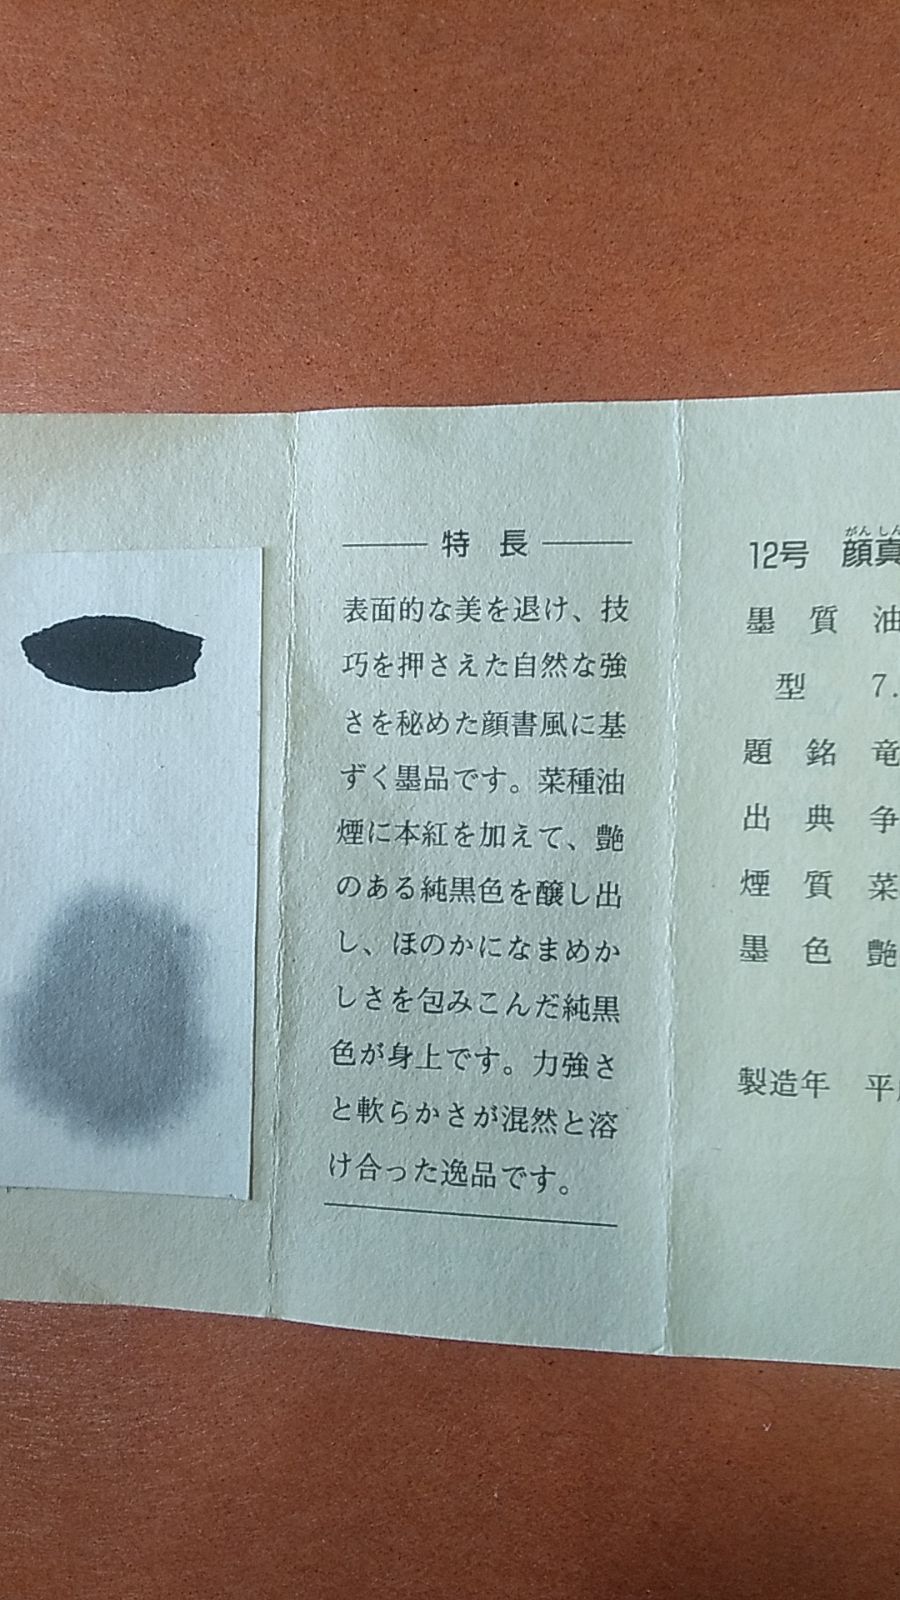 特 長
表面的な美を退け、技
巧を押さえた自然な強
さを秘めた顔書風に基
ずく墨品です。菜種油
煙に本紅を加えて、艶
のある純黒色を醸し出
し、ほのかになまめか
しさを包みこんだ純黒
色が身上です。力強さ
と軟らかさが混然と溶
け合った逸品です。
がん しん
12号 顔真
墨 質 油
型 7.
題 銘 竜
出 典 争
煙 質 菜
墨 色 艶
製造年 平